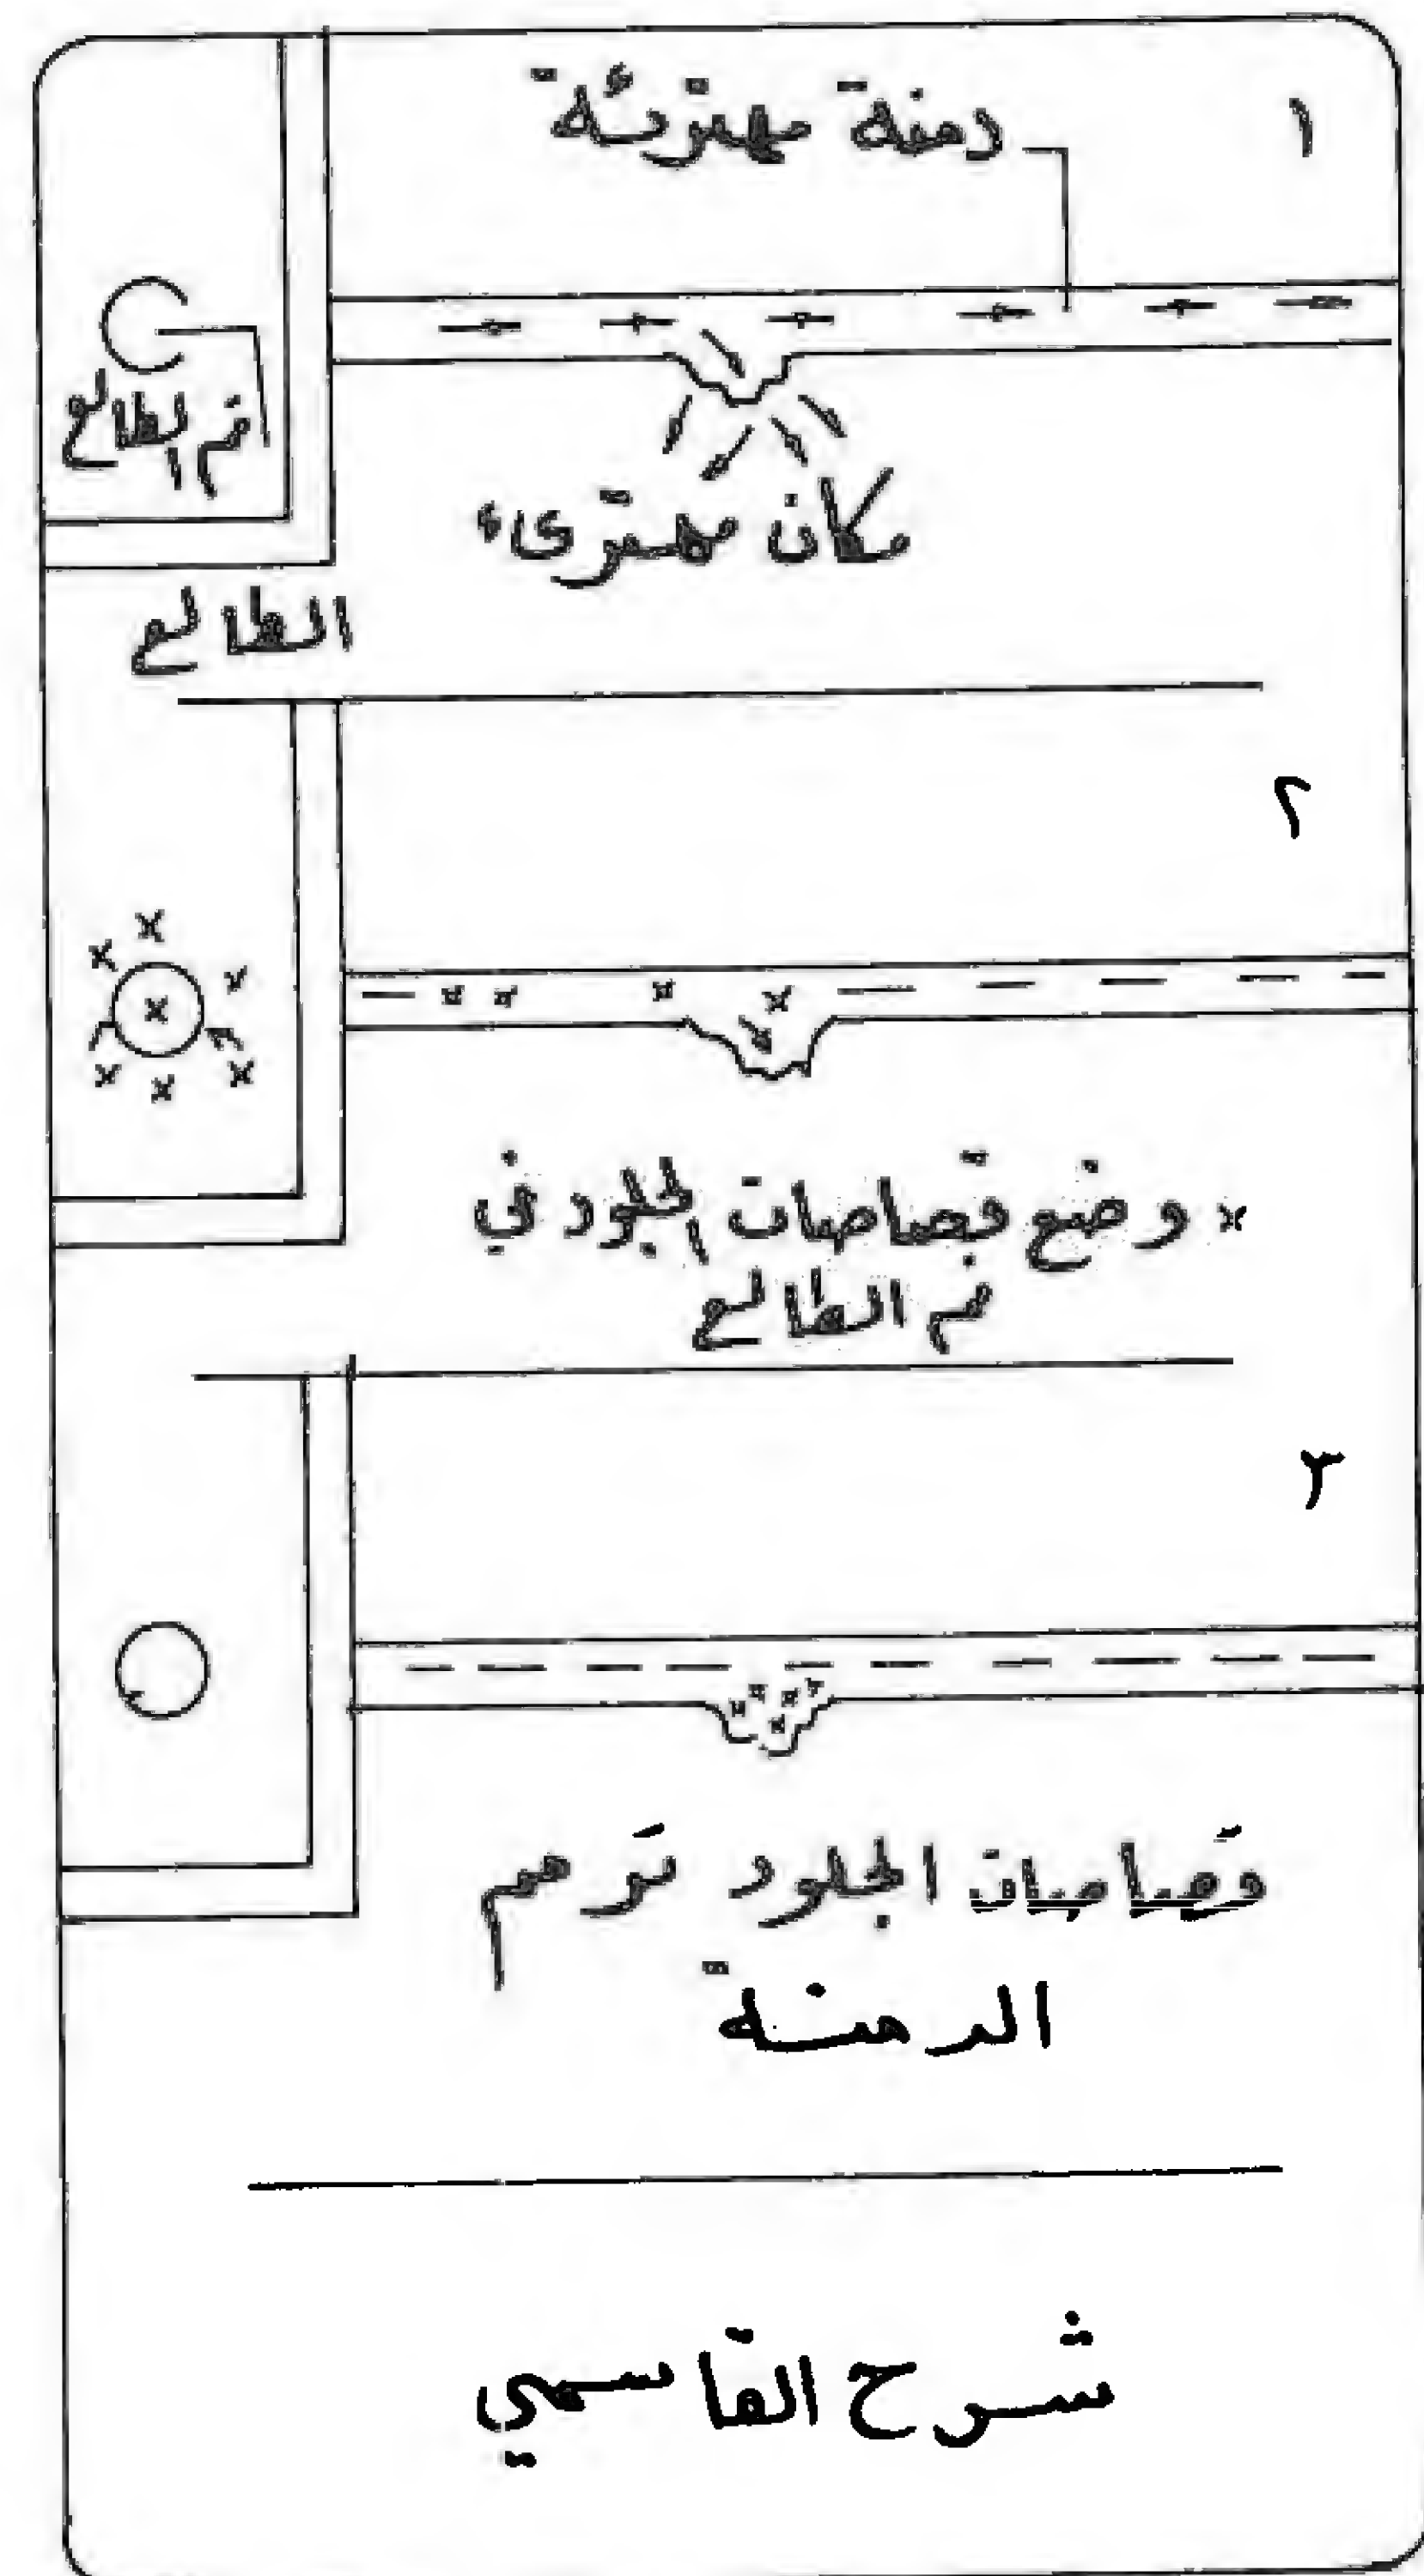 ١
دمنة مهترئة
فم الطالع
مكان مهترىء
الطالع
٢
× وضع قصاصات الجلود في
فم الطالع
٣
قصاصات الجلود ترمم
الدمنة
شرح القاسمي